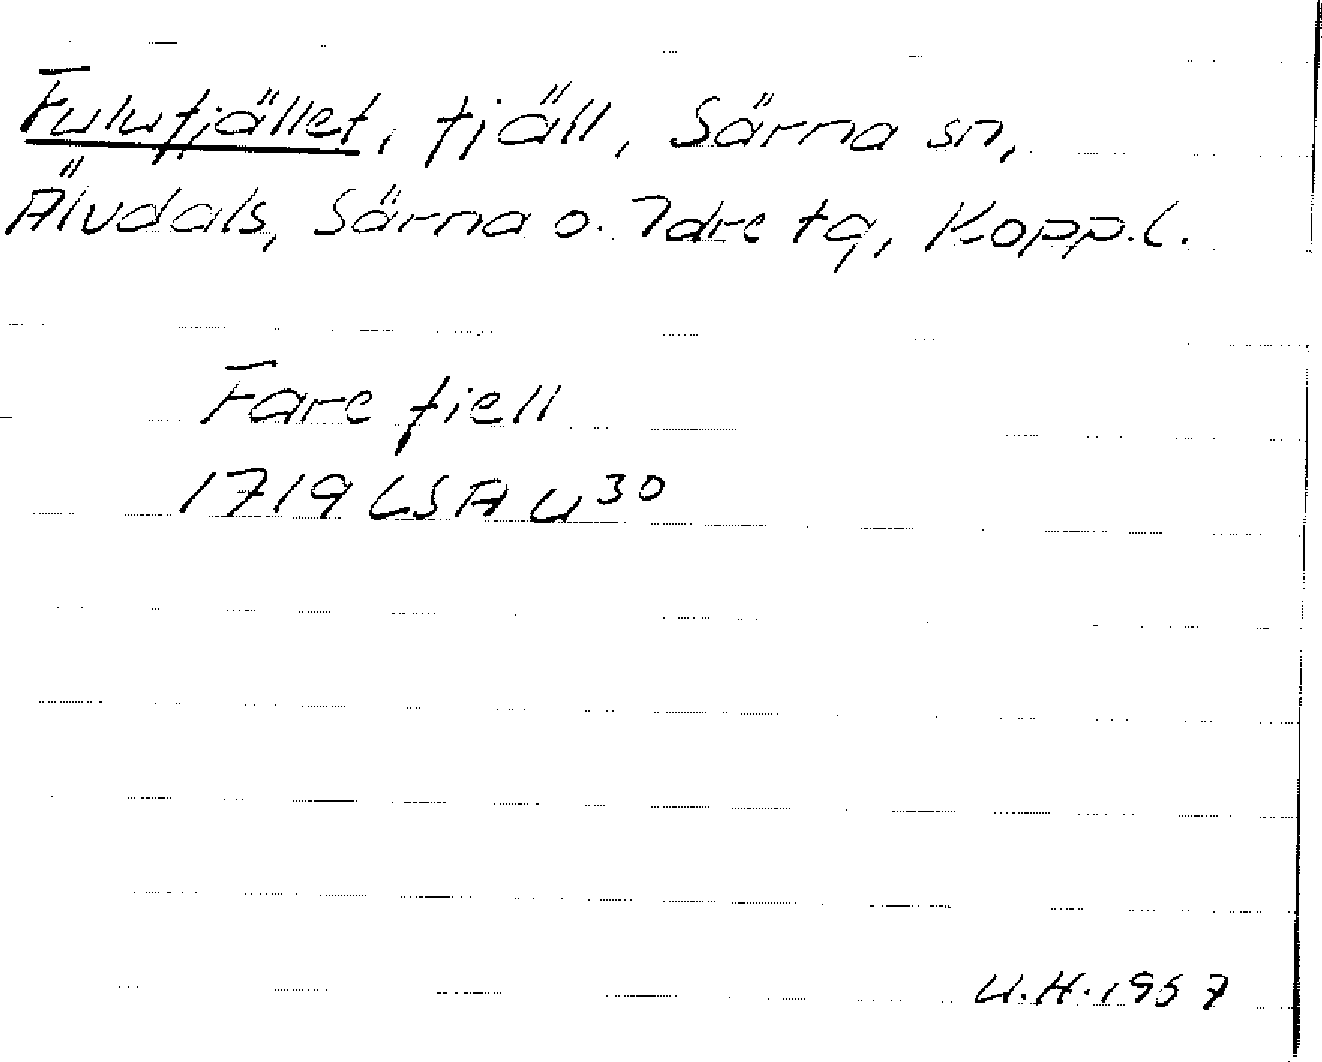 Fulufjället, fjäll, Särna sn,
Älvdals, Särna o. Idre tg, Kopp.l.
Fare fiell
1719 LSA U³⁰
U.H. 1957